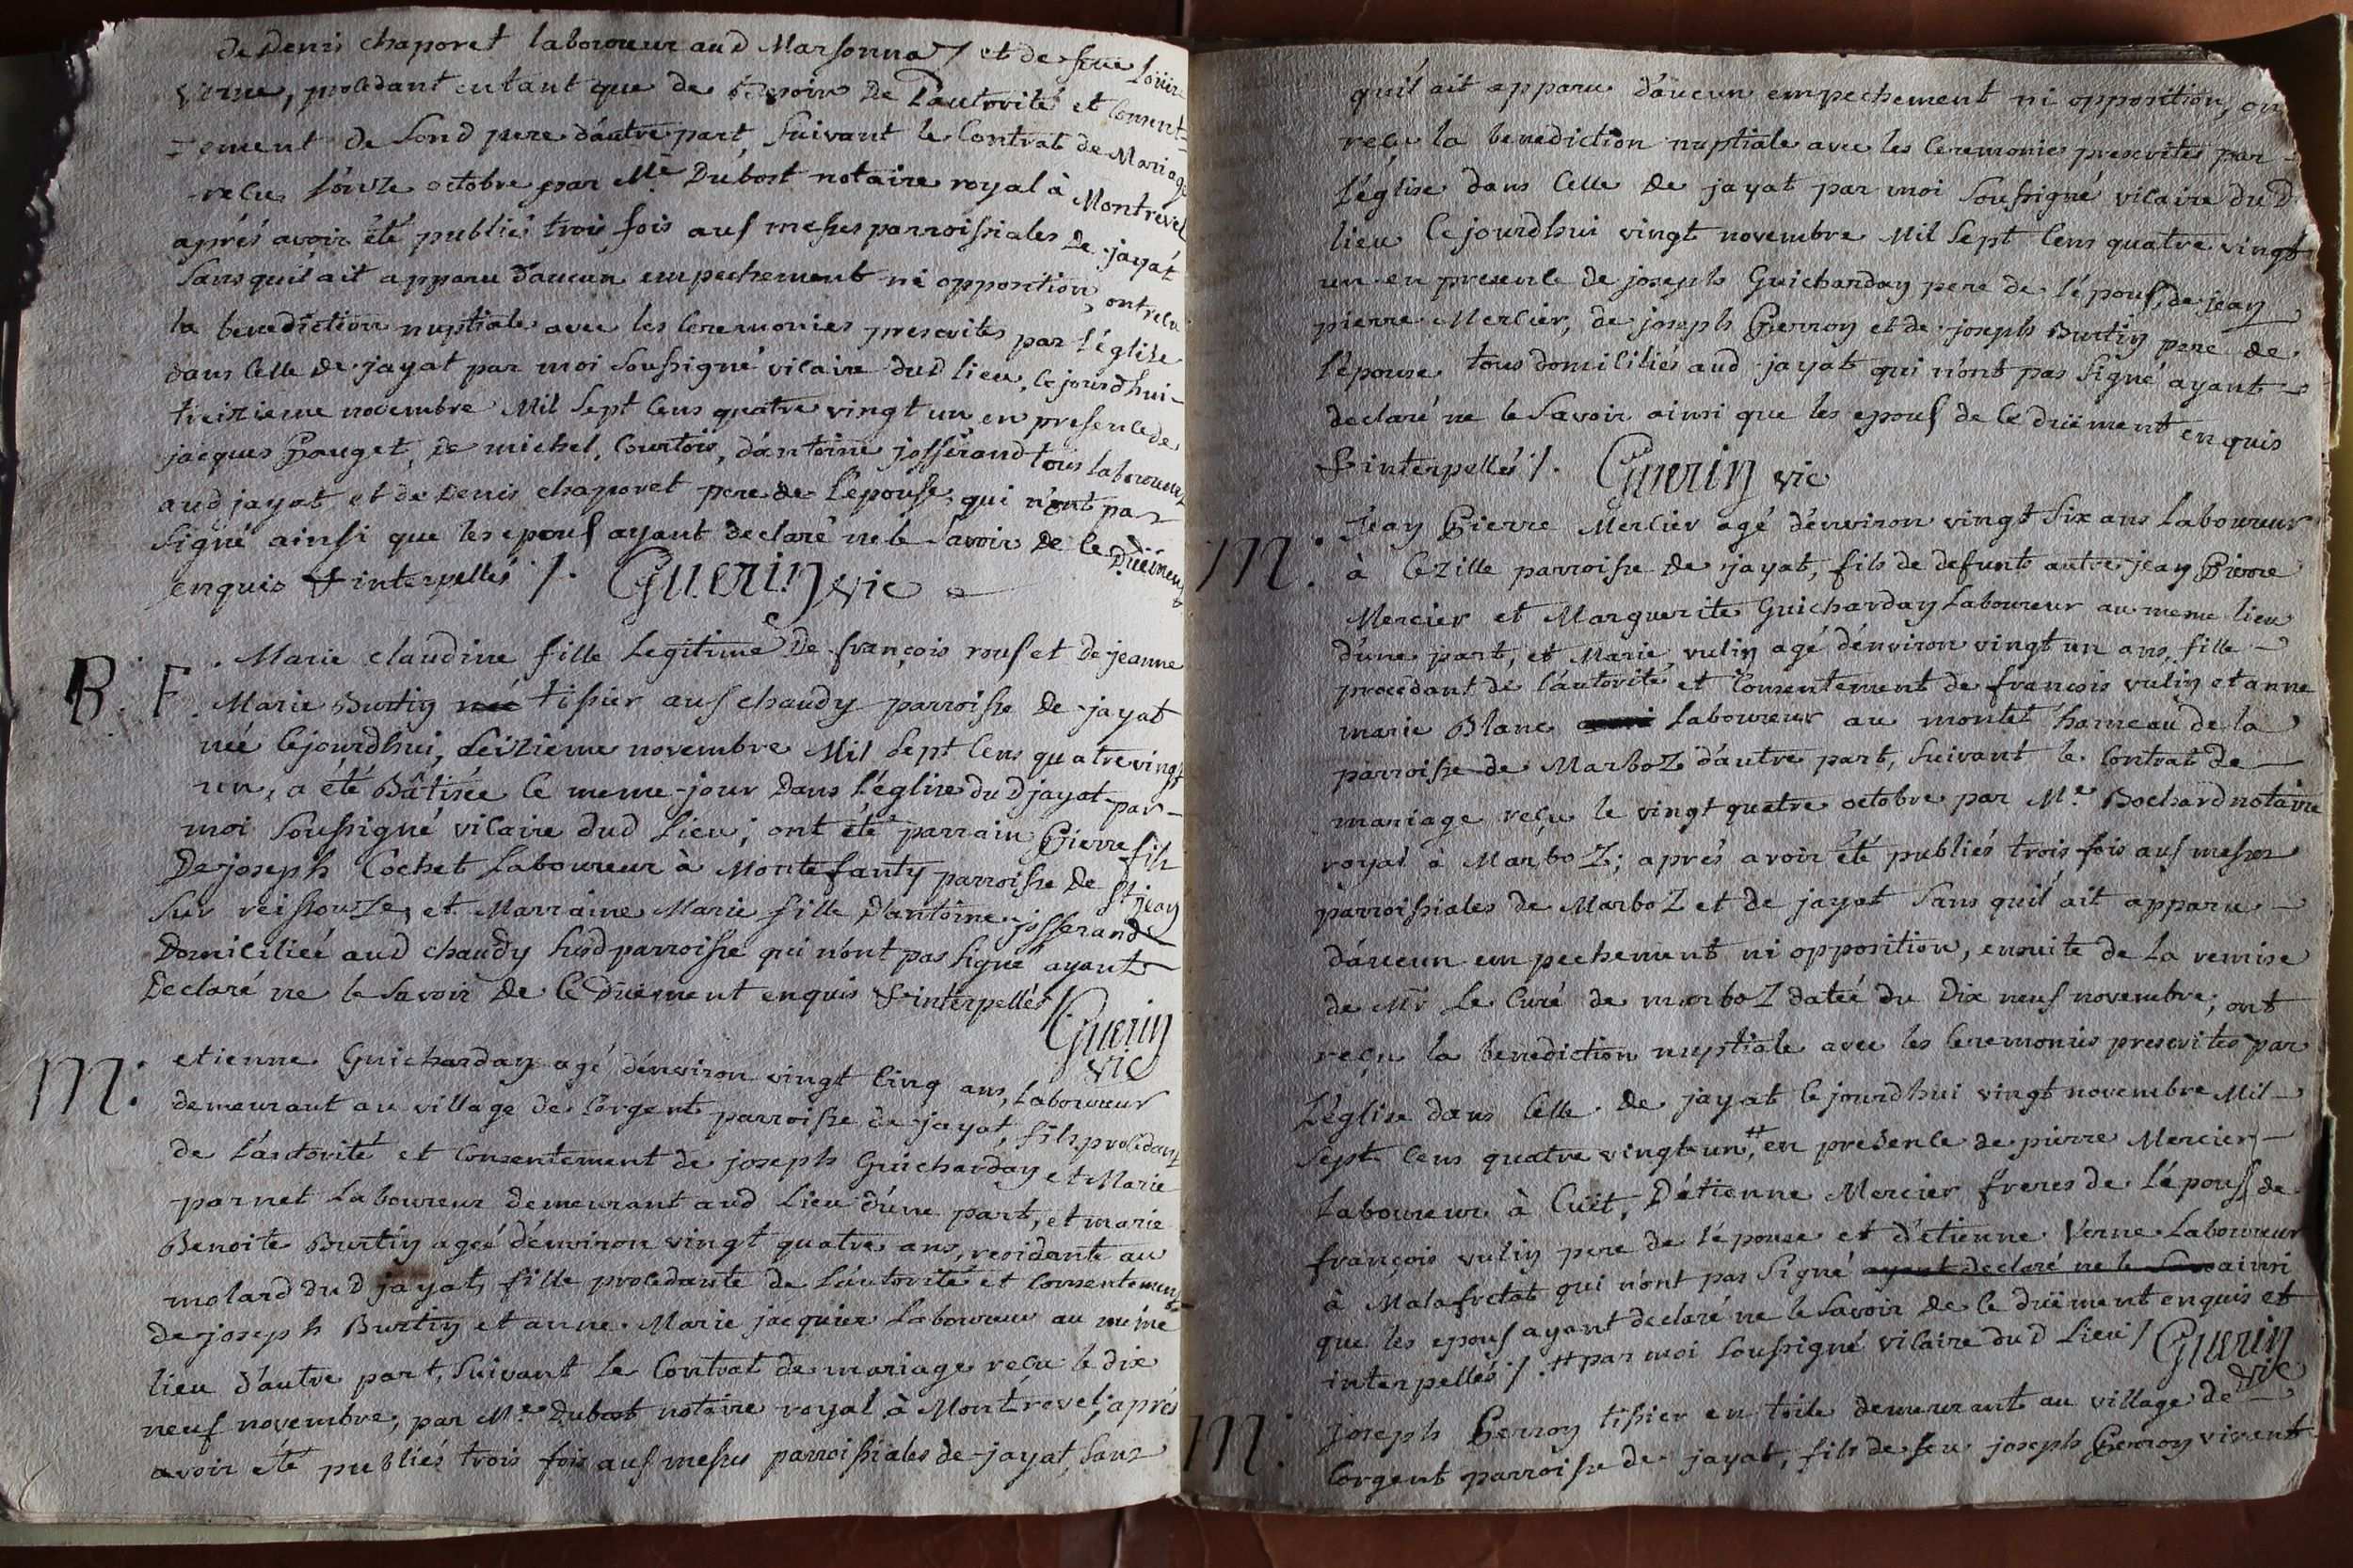 de Denis chaporet laboureur aud Marsonna / et de feue Loüise
Verne, procedant entant que de besoin de L'autorité et consent-
=ement de sond pere d'autre part, suivant le Contrat de Mariage
-recu L'onze octobre par Me Dubost notaire royal à Montrevel
aprés avoir été publiés trois fois aus messes parroissiales de jayat
sans quil ait apparu d'aucun empechement ni opposition, ont recu
la benediction nuptiale avec les ceremonies prescrites par l'église
dans celle de jayat par moi soussigné vicaire dud lieu, cejourdhui-
treizieme novembre Mil sept cens quatre vingt un, en presence de
jacques Pauget, de michel Courtois, d'antoine josserand tous laboureurs
aud jayat et de Denis chaporet pere de l'epouse qui n'ont pas
signé ainsi que les epous ayant declaré ne le savoir de ce Düement
enquis & interpellés /. Guerin vic
B. F. Marie claudine fille Legitime De françois rous et de jeanne
Marie Burtin née tissier aus chaudy parroisse de jayat
née cejourdhui, seizieme novembre Mil sept cens quatre vingt
un, a été Bâtisée le meme jour dans l'église dud jayat par-
moi soussigné vicaire dud lieu; ont été parrain Pierre fils
De joseph Cochet Laboureur à Montefanty parroisse de St jean
sur reissouze, et Marraine Marie fille d'antoine josserand
Domiciliée aud chaudy susd parroisse qui n'ont pas signé ayant
Declaré ne le savoir De ce Düement enquis & interpellés /. Guerin
vic
M. etienne Guicharday agé d'environ vingt cinq ans, Laboureur
demeurant au village de Corgent parroisse de jayat, fils procedant
de L'autorité et consentement de joseph Guicharday et Marie
parnet Laboureur demeurant aud lieu d'une part, et marie
Benoite Burtin ageé d'environ vingt quatre ans, residante au
molard dud jayat, fille procedante de L'autorité et consentement
de joseph Burtin et anne Marie jacquier Laboureur au même
lieu d'autre part, suivant le Contrat de mariage recu le dix
neuf novembre, par Me Dubost notaire royal à Montrevel; aprés
avoir été publiés trois fois aus messes parroissiales de jayat, sans
quil ait apparu d'aucun empechement ni opposition, ont
reçu la benediction nuptiale avec les ceremonies prescrites par-
L'église dans celle de jayat par moi soussigné vicaire dud
lieu cejourdhui vingt novembre Mil sept cens quatre vingt
un en presence de joseph Guicharday pere de l'épous, de jean
pierre Mercier, de joseph Perron et de joseph Burtin pere de
l'épouse tous domiciliés aud jayat qui n'ont pas signé ayant-
declaré ne le savoir ainsi que les epous de ce düement enquis
& interpellés /. Guerin vic
M. Jean Pierre Mercier agé d'environ vingt six ans Laboureur
à Cezille parroisse de jayat, fils de defunts autre jean Pierre
Mercier et Marguerite Guicharday Laboureur au meme lieu
d'une part, et Marie vulin agé d'environ vingt un ans, fille-
procedant de l'autorité et consentement de françois vulin et anne
marie Blanc Laboureur au montet hameau de la
parroisse de Marboz d'autre part, suivant le Contrat de-
mariage reçu le vingt quatre octobre par Me. Bochard notaire
royal à Marboz; aprés avoir été publiés trois fois aus messes
parroissiales de Marboz et de jayat sans quil ait apparu-
d'aucun empechement ni opposition, ensuite de la remise
de Mr Le Curé de marboz datée du Dix neuf novembre; ont
reçu la benediction nuptiale avec les ceremonies prescrites par
L'église dans celle de jayat cejourdhui vingt novembre Mil-
sept cens quatre vingt un, # en presence de pierre Mercier-
Laboureur à Cuet, D'étienne Mercier freres de l'épous, de
françois vulin pere de l'épouse et d'étienne Verne Laboureur
à Malafretat qui n'ont pas signé ayant declaré ne le savo ainsi
que les epous ayant declaré ne le savoir de ce düement enquis et
interpellés /. # par moi soussigné vicaire dud lieu / Guerin
vic
M. joseph Perron tissier en toile demeurant au village de-
Corgent parroisse de jayat, fils de feu joseph Perron vivent